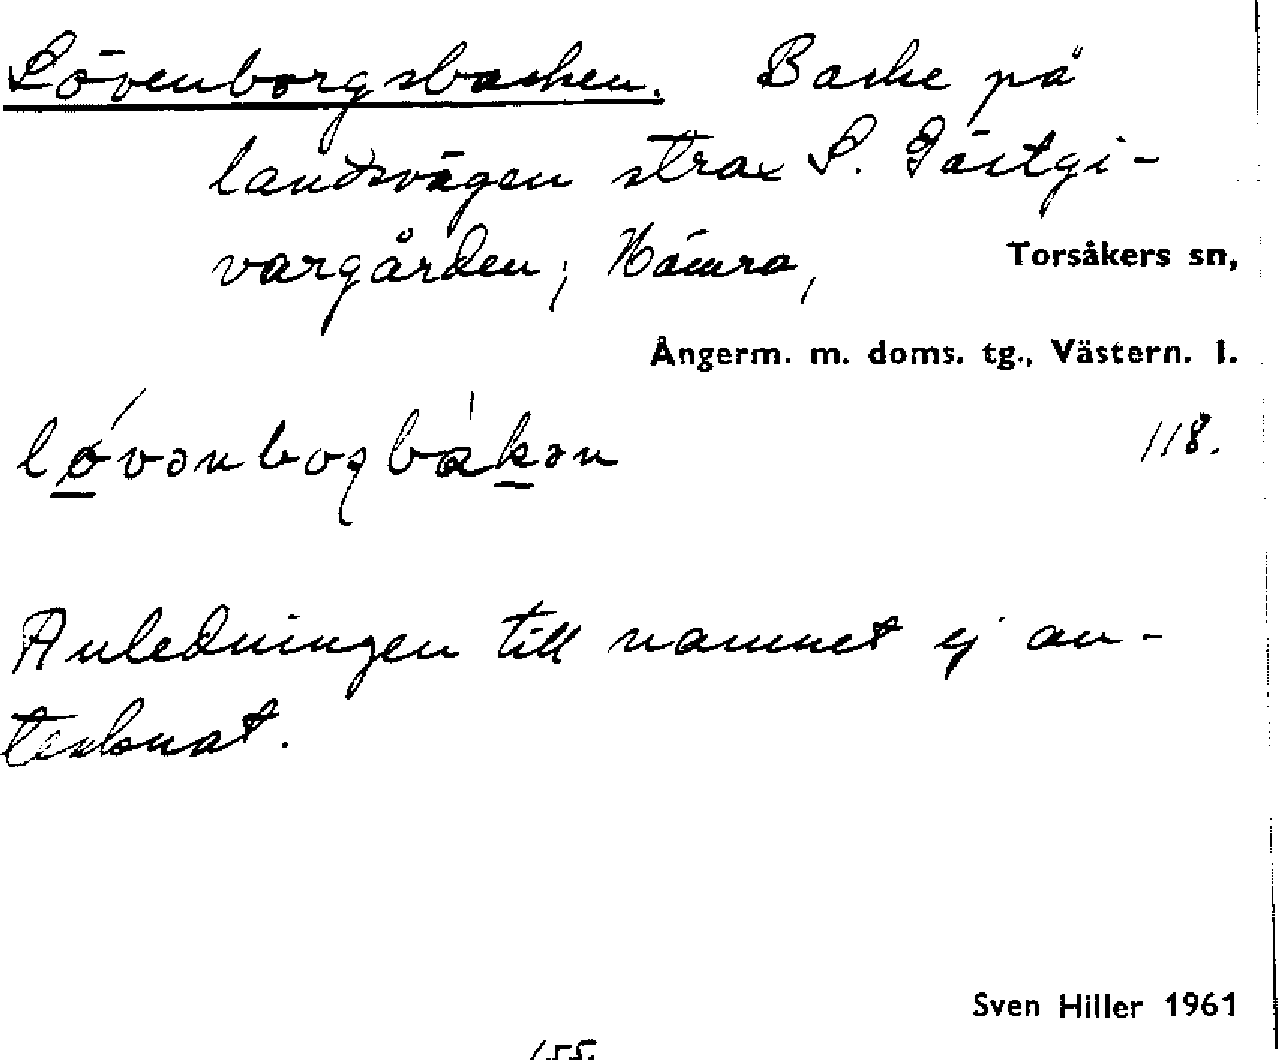 Lövenborgsbacken. Backe på
landsvägen strax S. Gästgi-
vargården, Hämra, Torsåkers sn,
Ångerm. m. doms. tg., Västern. l.
118.
Anledningen till namnet ej an-
tecknat.
Sven Hiller 1961
155